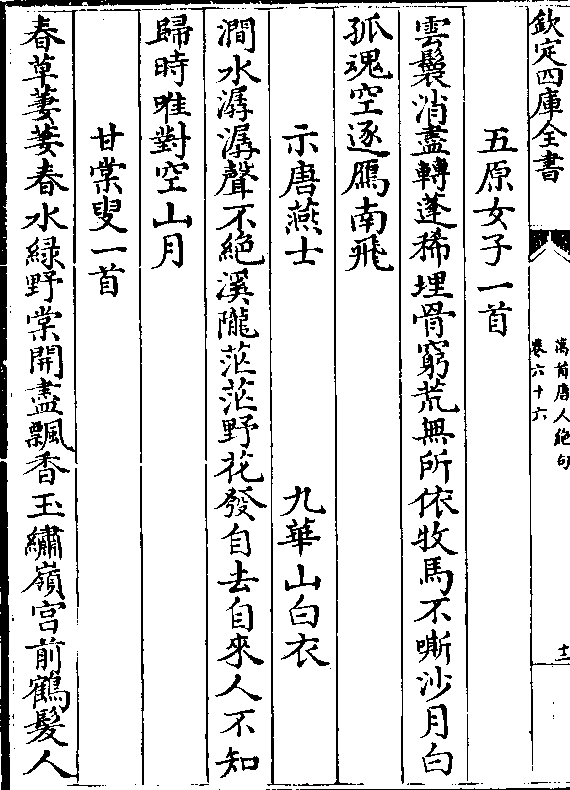 欽定四庫全書
萬首唐人絶句
卷六十六
十二
五原女子一首
雲鬟消盡轉蓬稀埋骨窮荒無所依牧馬不嘶沙月白
孤魂空逐鴈南飛
示唐燕士 九華山白衣
澗水潺潺聲不絶溪隴茫茫野花發自去自來人不知
歸時唯對空山月
甘棠叟一首
春草萋萋春水緑野棠開盡飄香玉繡嶺宫前鶴髮人